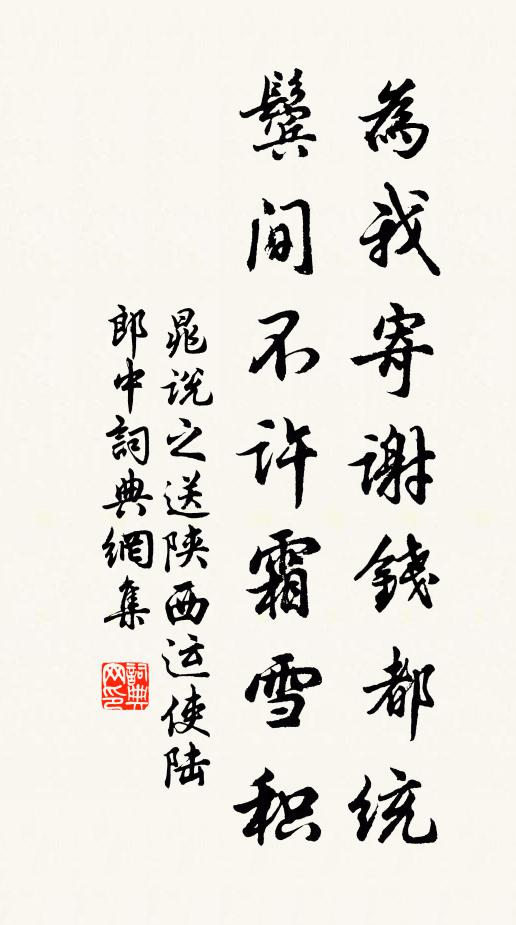 為我寄谢錢都統
鬓间不许霜雪积
晁说之送陕西运使陆
郎中詞典網集
詞典
网印